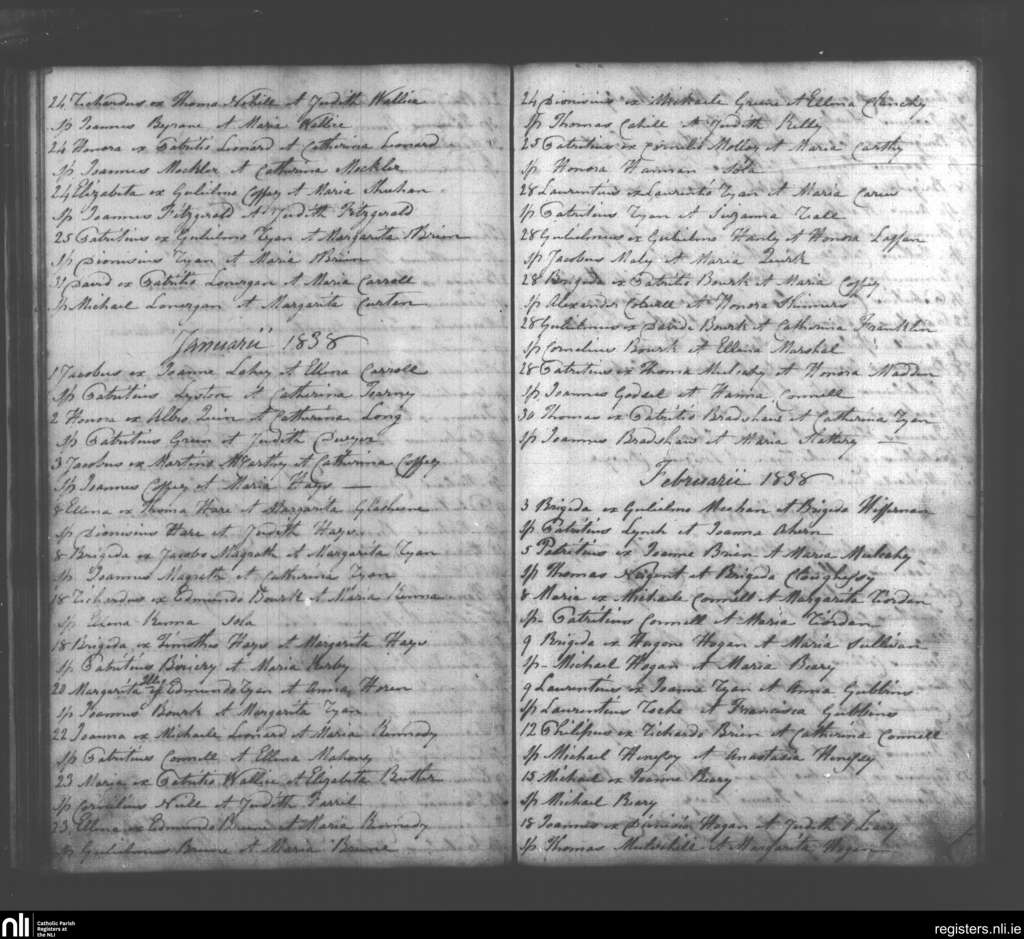 24 Richardus ex Thoma Nehill et Judith Wallice
Sp Joannes Byrane et Maria Wallice
24 Honora ex Patritio Leonard et Catherina Leonard
Sp Joannes Meckler et Catherina Meckler
24 Elizabeta ex Gulielmo Coffey et Maria Shuhan
Sp Joannes Fitzgerald et Judith Fitzgerald
25 Patritius ex Gulielmo Ryan et Margarita OBrien
Sp Dionisius Ryan et Maria OBrien
31 David ex Patritio Lonergan et Maria Carroll
Sp Michael Lonergan et Margarita Curtin
Januarii 1838
1 Jacobus ex Joanne Lahey et Ellena Carroll
Sp Patritius Lyston et Catherina Kearney
2 Honora ex Albio Quin et Catherina Long
Sp Patritius Green et Judith Dwyer
3 Jacobus ex Martino McCarthy et Catherina Coffey
Sp Joannes Coffey et Maria Hays
8 Ellena ex Thoma Hare et Margarita
Sp Dionisius Hare et Judith Hays
8 Brigida ex Jacobo Magrath et Margarita Ryan
Sp Joannes Magrath et Catherina Ryan
18 Richardus ex Edmundo Bourk et Maria Kenna
Sp Kenna Sola
18 Brigida ex Timotheo Hays et Margarita Hays
Sp Patritius et Maria Kerby
20 Margarita Ille ex Edmundo Ryan et Anna Horen
Sp Joannes Bourk et Margarita Ryan
22 Joanna ex Michaele Leonard et Maria Kennedy
Sp Patritius Connell et Ellena Mahoney
23 Maria ex Patritio Wallice et Elizabeta Butler
Sp Cornelius Neill et Judith Farril
23 Ellena ex Edmundo Brune et Maria Kennedy
Sp Gulielmus Brune et Maria Brune
24 Dionisius ex Michaele Greene et Ellena Clanchy
Sp Thomas Cahill et Judith Kelly
25 Patritius ex Cornelio Molloy et Maria Carthy
Sp Honora Hannan Sola
28 Laurentius ex Laurentio Ryan et Maria Carew
Sp Patritius Ryan et Suzanna Ryan
28 Gulielmus ex Gulielmo Hanly et Honora Laffan
Sp Jacobus Maly et Maria Quirk
28 Brigida ex Patritio Bourk et Maria Coffey
Sp Alexander et Honora Skinners
28 Gulielmus ex Davide Bourk et Catherina Franklin
Sp Cornelius Bourk et Ellena Marshal
28 Patritius ex Thoma Mulcahy et Honora Madden
Sp Joannes Godsel et Hanna Connell
30 Thomas ex Patritio Bradshaw et Catherina Ryan
Sp Joannes Bradshaw et Maria Slattery
Februarii 1838
3 Brigida ex Gulielmo Meehan et Brigida Heffernan
Sp Patritius Lynch et Joanna Ahern
5 Patritius ex Joanne Brien et Maria Mulcahy
Sp Thomas Nugent et Brigida Cloughessy
8 Maria ex Michaele Connell et Margarita Riordan
Sp Patritius Connell et Maria Riordan
9 Brigida ex Hugone Hogan et Maria Sullivan
Sp Michael Hogan et Maria Beary
9 Laurentius ex Joanne Ryan et Anna Gubbins
Sp Laurentius Roche et Francisca Gubbins
12 Philipus ex Richardo Brien et Catherina Connell
Sp Michael Hengsey et Anastasia Hengsey
15 Michael ex Joanne Beary
Sp Michael Beary
18 Joannes ex Dionisio Hogan et Judith O Leary
Sp Thomas Mulvihill et Margarita Hogan
nli
Catholic Parish
Registers at
the NLI
registers.nli.ie